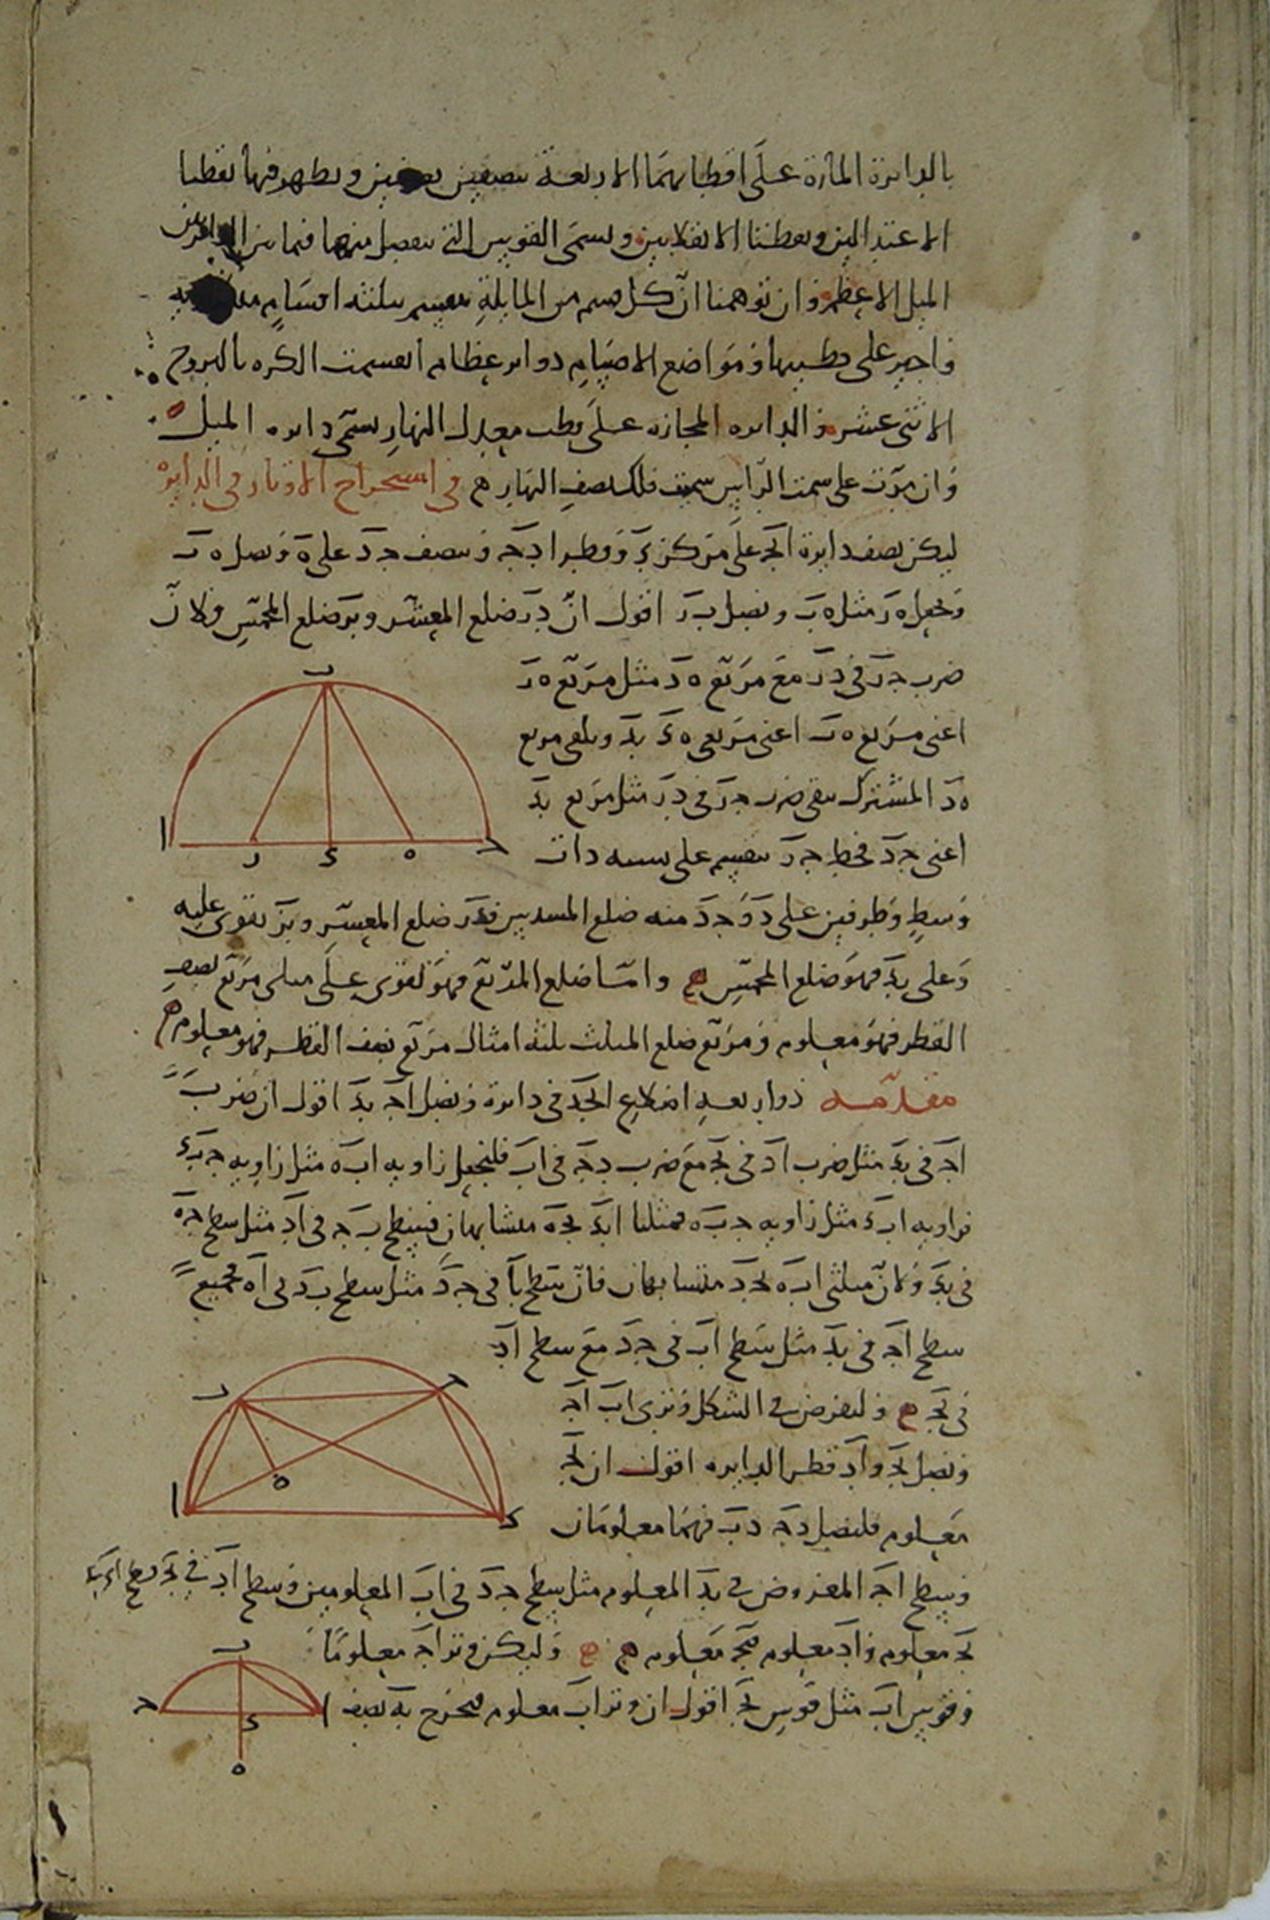 بالدائرة المارة على اقطابهما الاربعة بنصفين نصفين ويظهر فيها نقطتا
الاعتدالين ونقطتا الانقلابين ويسمى القوس التى تنفصل منها فيما بين الدائرتين
الميل الاعظم وان توهمنا ان كل قسم من المايلة ينقسم بثلثه اقسام
واجيز على قطبيها ومواضع الاقسام دواير عظام انقسمت الكره بالبروج
الاثنى عشر والدايره المجازه على قطب معدل النهار يسمى دايره الميل
وان مرت على سمت الراس سميت فلك نصف النهار ه في استخراج الاوتار في الدايرة
ليكن نصف دايرة ابج على مركز د وقطر ادج وننصف جد على ه ونصل ه ب
ونجعل ه ر مثل ه ب ونصل ب ر اقول ان در ضلع المعشر وبر ضلع المخمس فلان
ضرب جر في در مع مربع ه د مثل مربع ه ر
اعنى مربع ه ب اعنى مربعى ه د بد ويلقى مربع
ه د المشترك يبقى ضرب جر في در مثل مربع بد
اعنى جد فخط جر ينقسم على نسبه ذات
وسط وطرفين على د و جد منه ضلع المسدس فدر ضلع المعشر وبر يقوى عليه
وعلى بد فهو ضلع المخمس ه واما ضلع المربع فهو يقوى على مثلى مربع نصف
القطر فهو معلوم ومربع ضلع المثلث ثلثه امثال مربع نصف القطر فهو معلوم ه
مقدمه ذو اربعه اضلاع ابجد في دايرة ونصل اج بد اقول ان ضرب
اج في بد مثل ضرب اد في بج مع ضرب دج في اب فلنجعل زاويه ابه مثل زاويه جبد
فزاويه ابد مثل زاويه جبه فمثلثا ابد بجه متشابهان فسطح بج في اد مثل سطح جه
في بد ولان مثلثى ابه بجد متشابهان فان سطح با في جد مثل سطح بد في اه فجميع
سطح اج في بد مثل سطح اب في جد مع سطح اد
في بج ه ولنفرض في الشكل وترى اب اج
ونصل بج واد قطر الدايره اقول ان بج
معلوم فلنصل دج دب فهما معلومان
وسطح اج المفروض في بد المعلوم مثل سطح جد في اب المعلومين وسطح اد في بج فسطح اد في
بج معلوم واد معلوم فبج معلوم ه ه وليكن وتر اج معلوما
وقوس اب مثل قوس بج اقول ان وتر اب معلوم فنخرج به نصف
ب
ا ر د ه ج
ب ج
ه
ا د
ب
ج د ا
ه